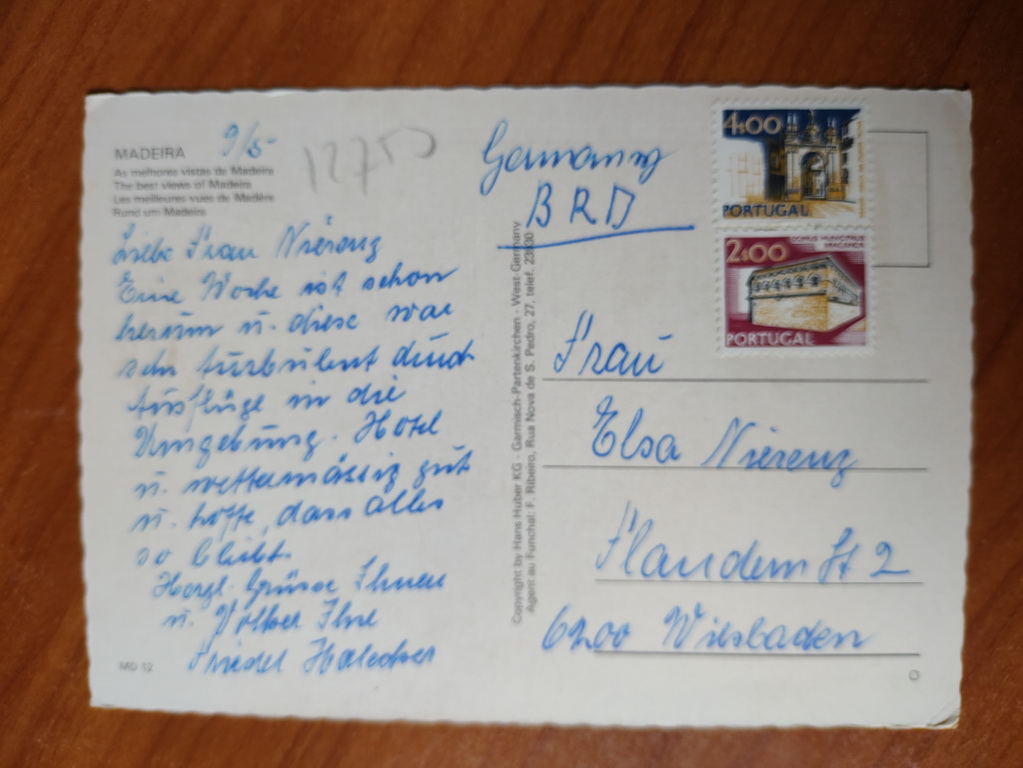 MADEIRA 9/5
As melhores vistas de Madeira
The best views of Madeira
Les meilleures vues de Madère
Rund um Madeira
12750
Liebe Frau Nierenz
Eine Woche ist schon
herum u. diese war
sehr turbulent durch
Ausflüge in die
Umgebung. Hotel
u. wettermässig gut
u. hoffe, dass alles
so bleibt.
Herzl. Grüsse Ihnen
u. Volker Ihre
Friedel
MD 12
Copyright by Hans Huber KG - Garmisch-Partenkirchen - West-Germany
Agent au Funchal: F. Ribeiro, Rua Nova de S. Pedro, 27, telef. 23930
Germany
BRD
4$00
PORTUGAL
2$00
DOMUS MUNICIPALIS
BRAGANÇA
PORTUGAL
Frau
Elsa Nierenz
Flandern St 2
6200 Wiesbaden